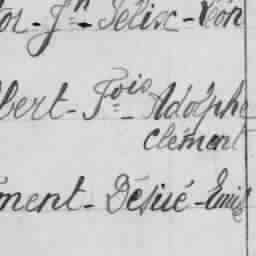 tor - Jn - Félix - Léon
lbert - Fois - Adolphe
Clément
ment - Désiré - Emile